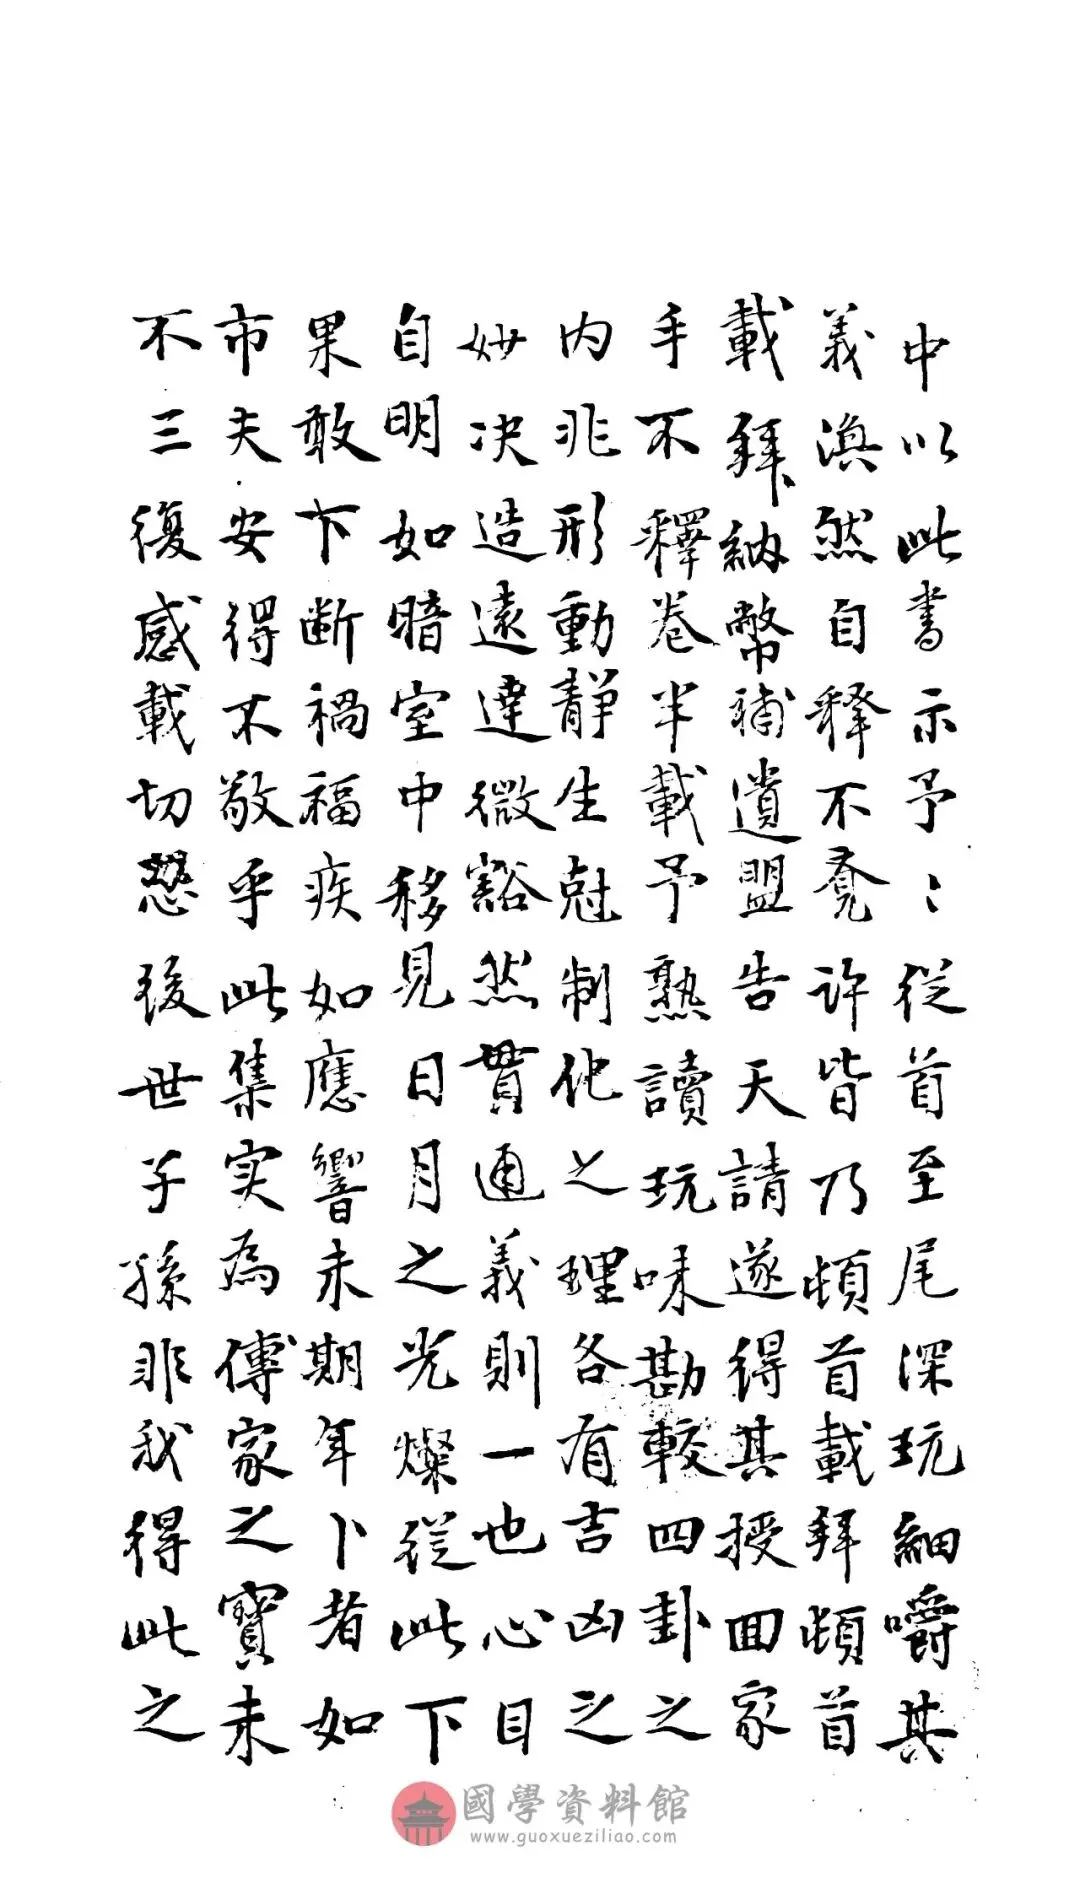 中以此書示予〻從首至尾深玩細嚼其
義渙然自釋不覺許皆乃頓首載拜頓首
載拜納幣補遺盟告天請遂得其授回家
手不釋卷半載予熟讀玩味勘較四卦之
内非形動靜生尅制化之理各有吉凶之
妙决造遠達微豁然貫通義則一也心目
自明如暗室中移見日月之光燦從此下
果敢下断禍福疾如應響未期年卜者如
市夫安得不敬乎此集实為傳家之寳未
不三復感載切恐後世子孫非我得此之
國學資料館
www.guoxueziliao.com